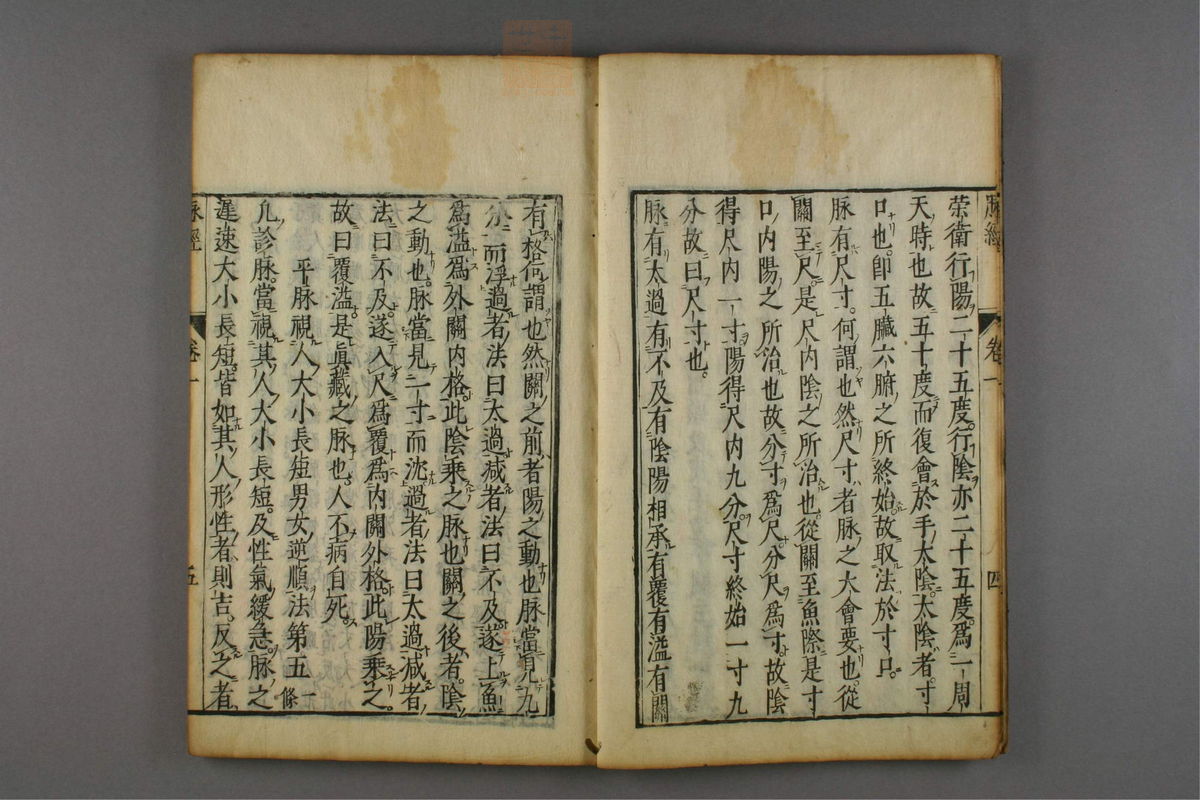 脉經
卷一
四
榮衛行陽二十五度行陰亦二十五度爲一周
天時也故五十度而復會於手太陰太陰者寸
口也即五臟六腑之所終始故取法於寸口
脉有尺寸何謂也然尺寸者脉之大會要也從
關至尺是尺内陰之所治也從關至魚際是寸
口内陽之所治也故分寸爲尺分尺爲寸故陰
得尺内一寸陽得尺内九分尺寸終始一寸九
分故曰尺寸也
脉有太過有不及有陰陽相承有覆有溢有關
有格何謂也然關之前者陽之動也脉當見九
分而浮過者法曰太過減者法曰不及遂上魚
爲溢爲外關内格此陰乘之脉也關之後者陰
之動也脉當見一寸而沈過者法曰太過減者
法曰不及遂入尺爲覆爲内關外格此陽乘之
故曰覆溢是眞藏之脉也人不病自死
平脉視人大小長短男女逆順法第五 一條
凡診脉當視其人大小長短及性氣緩急脉之
遲速大小長短皆如其人形性者則吉反之者
脉經
卷一
五